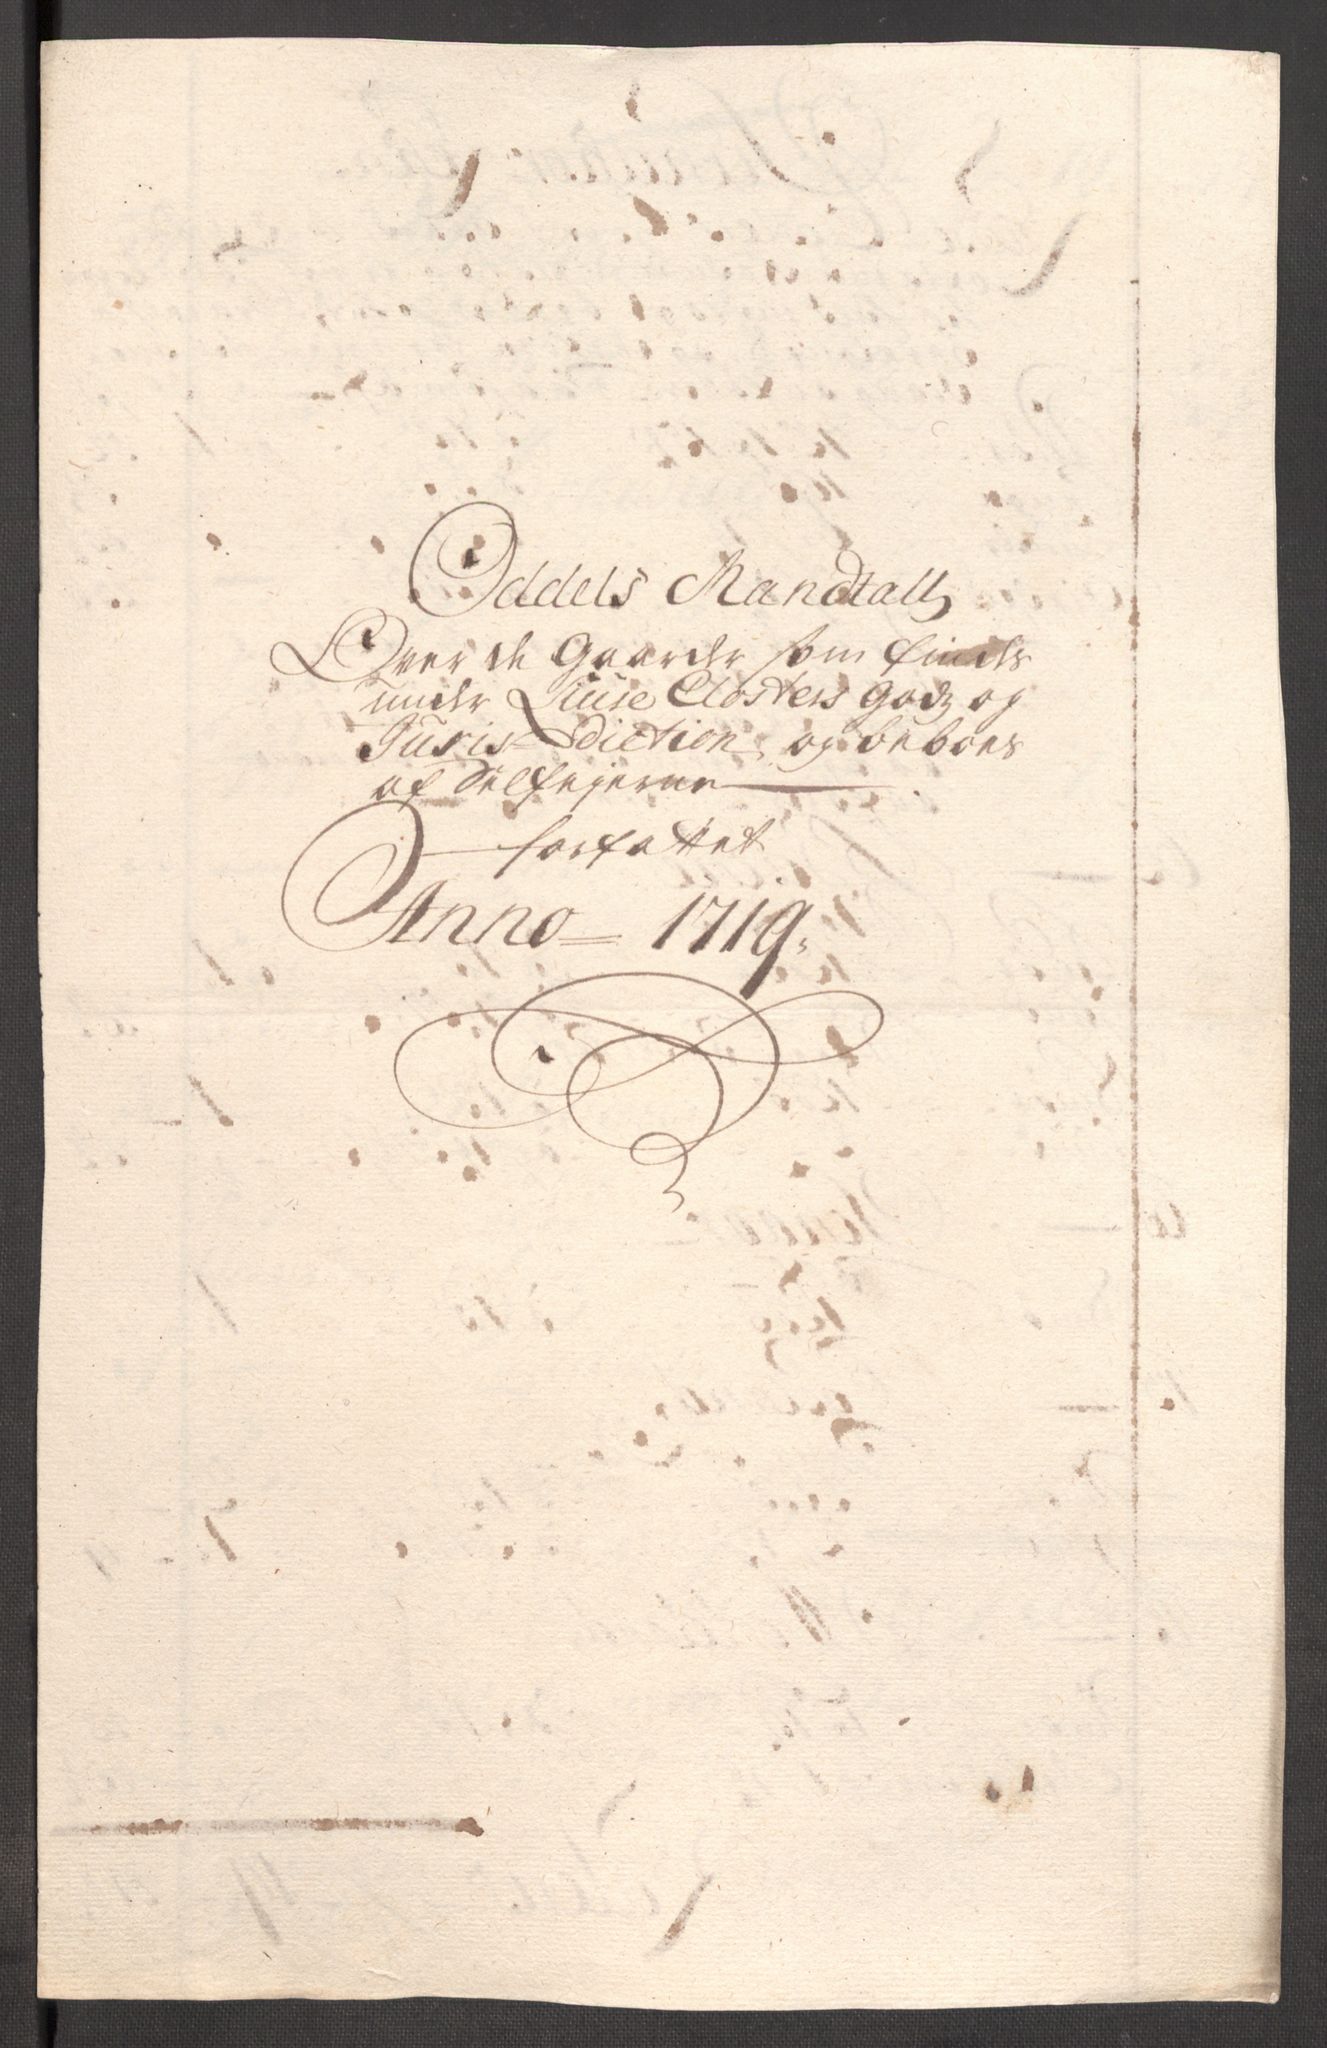 Oddels Mandtall
Over de Gaarder som findes
under Liuse Closters Godz og
Juris-Diction, og beboes
af Selfejerne
forfattet
Anno 1719.